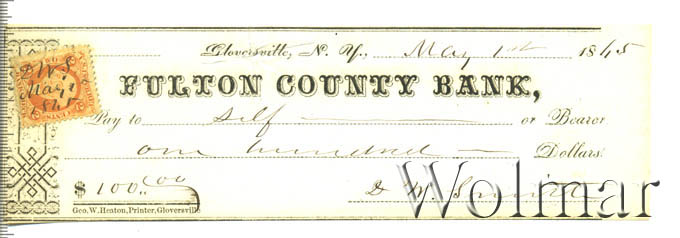 Gloversville, N. Y., May 1st 1865
FULTON COUNTY BANK,
Pay to self or Bearer
one hundred Dollars.
$ 100.00
D W Smith
Geo. W. Heaton, Printer, Gloversville
D W S
May 1
Wolmar